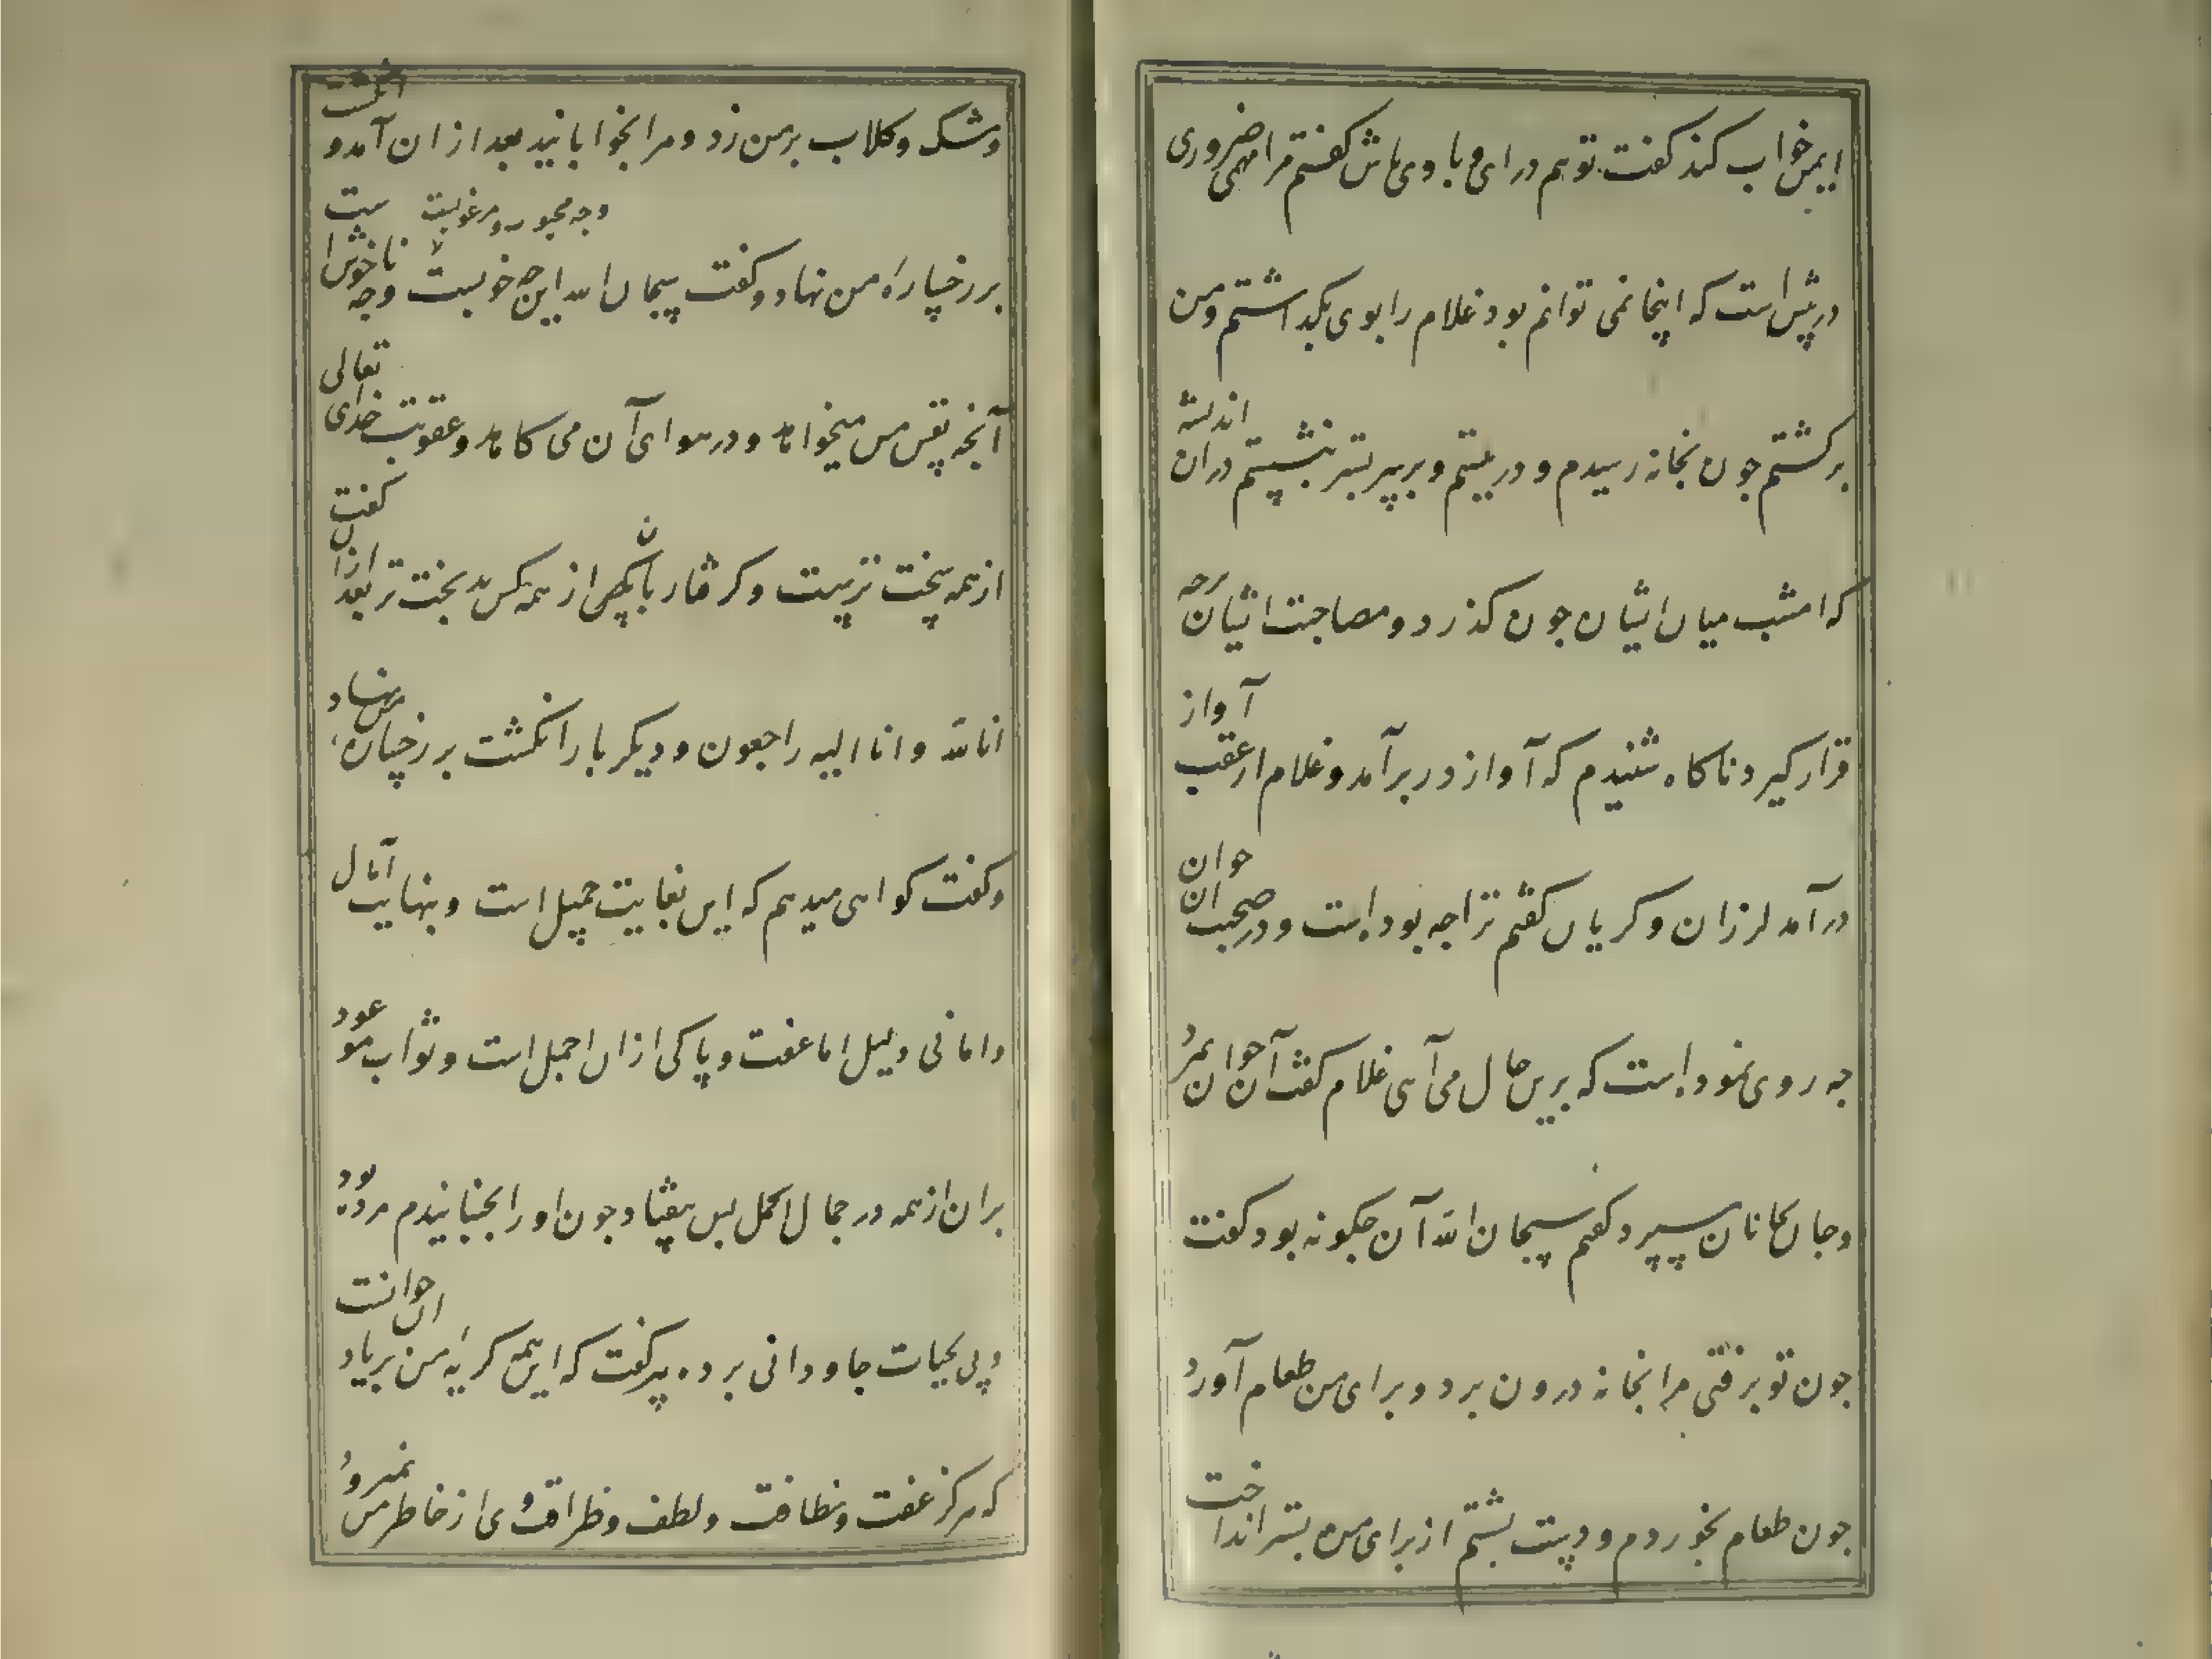 ایمن خواب کند کفت تو هم درای و با وی باش کفتم مرا مهمی ضروری
در پیش است که اینجا نمی توانم بود غلام را بوی بکذاشتم و من
برکشتم جون بخانه رسیدم و در ببستم و بر سر بستر بنشستم دران اندیشه
که امشب میان ایشان جون کذرد و مصاحبت ایشان برجه
قرار کیرد ناکاه شنیدم که آواز در برآمد و غلام از عقب آواز
درآمد لرزان و کریان کفتم ترا جه بوده است و در صحبت ان جوان
جه روی نموده است که برین حال می آی غلام کفت آن جوان بمرد
و جان بجانان سپرد کفتم سبحان الله آن جکونه بود کفت
جون تو برفتی مرا بخانه درون برد و برای من طعام آورد
جون طعام بخوردم و دست بشستم از برای من بستر انداخت
و مشک و کلاب بر من زد و مرا بخوابانید بعد ازان آمد و انکشت
بر رخساره من نهاد و کفت سبحان الله این جه خوبست وجه محبوب و مرغوبست وجه ناخوش است
آنجه نفس من میخواهد و در هوای آن می کاهد و عقوبت خدای تعالی
از همه سخت ترست و کرفتار بآن کسی از همه کس بدبخت تر بعد ازان کفت
انا لله و انا الیه راجعون و دیکر بار انکشت بر رخساره من نهاد
و کفت کواهی میدهم که این بغایت جمیل است و بنهایت آمال
و امانی دلیل اما عفت و پاکی ازان اجمل است و ثواب موعود
بران از همه در جمال اکمل پس بیفتاد جون او را بجنبانیدم مرده بود
و پی بحیات جاودانی برده پیر کفت که این همه کریه من بر یاد ان جوانست
که هرکز عفت و نظافت و لطف و ظرافت وی از خاطر من نمیرود